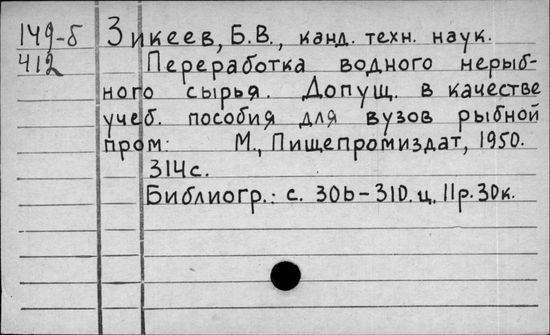 149-б Зикеев, Б.В., канд. техн. наук.
412 Переработка водного нерыб-
ного сырья. Допущ. в качестве
учеб. пособия для вузов рыбной
пром: М., Пищепромиздат, 1950.
314 с.
Библиогр.: с. 306-310. ц. 11р. 30к.